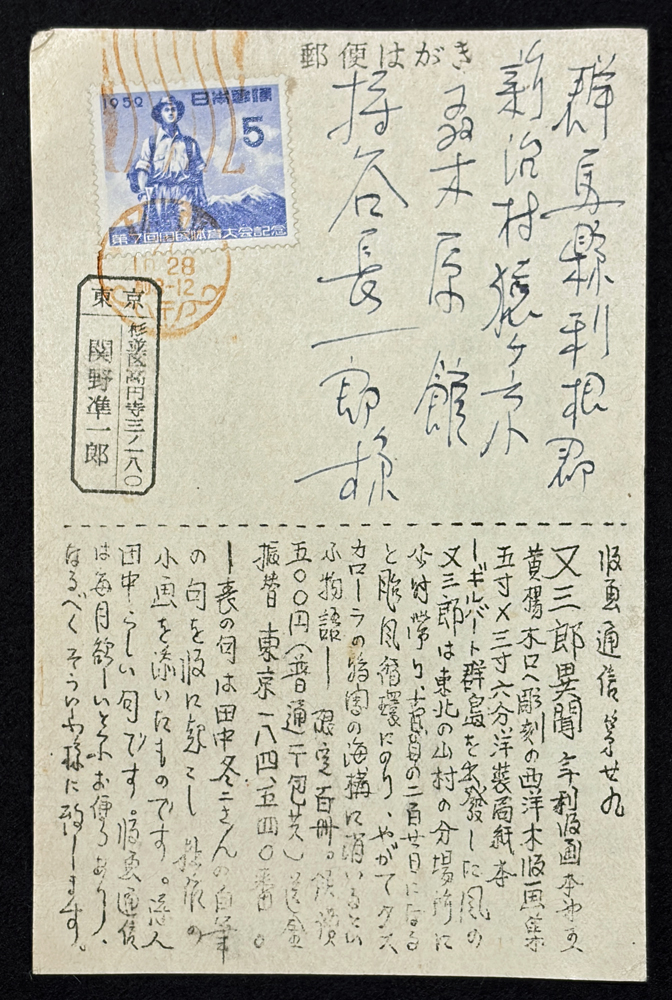 郵便はがき
群馬縣利根郡
新治村猿ヶ京
桑木原館
持谷長一郎様
1952 日本郵便
5
第7回国民体育大会記念
10 28
東京
杉並区高円寺三ノ一八〇
関野準一郎
版画通信第廿九
又三郎異聞 年刊版画本
黄楊木口へ彫刻の西洋木版画集
五寸×三寸六分洋装局紙本
ーギルバート群島を出發した風の
又三郎は東北の山村の分場所に
と颱風循環にのり、やがてタス
カローラの海溝に消いるとい
ふ物語ー限定百冊。
五〇〇円(普通下包共)送金
振替東京一八四、五四〇番。
ー表の句は田中冬二さんの自筆
の句を版に起こし
小画を添いたものです。詩人
田中らしい句です。版画通信
は毎月欲しいと云お便りあり、
なるべくそういふ様に致します。